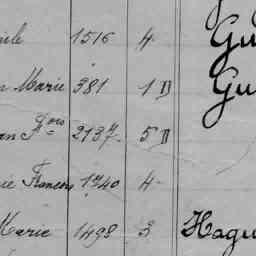 ile 1516 4 Gu
n Marie 381 1 D Gu
an Fçois 2137 5 D
ie Francois 1740 4
Marie 1498 3 Hagu